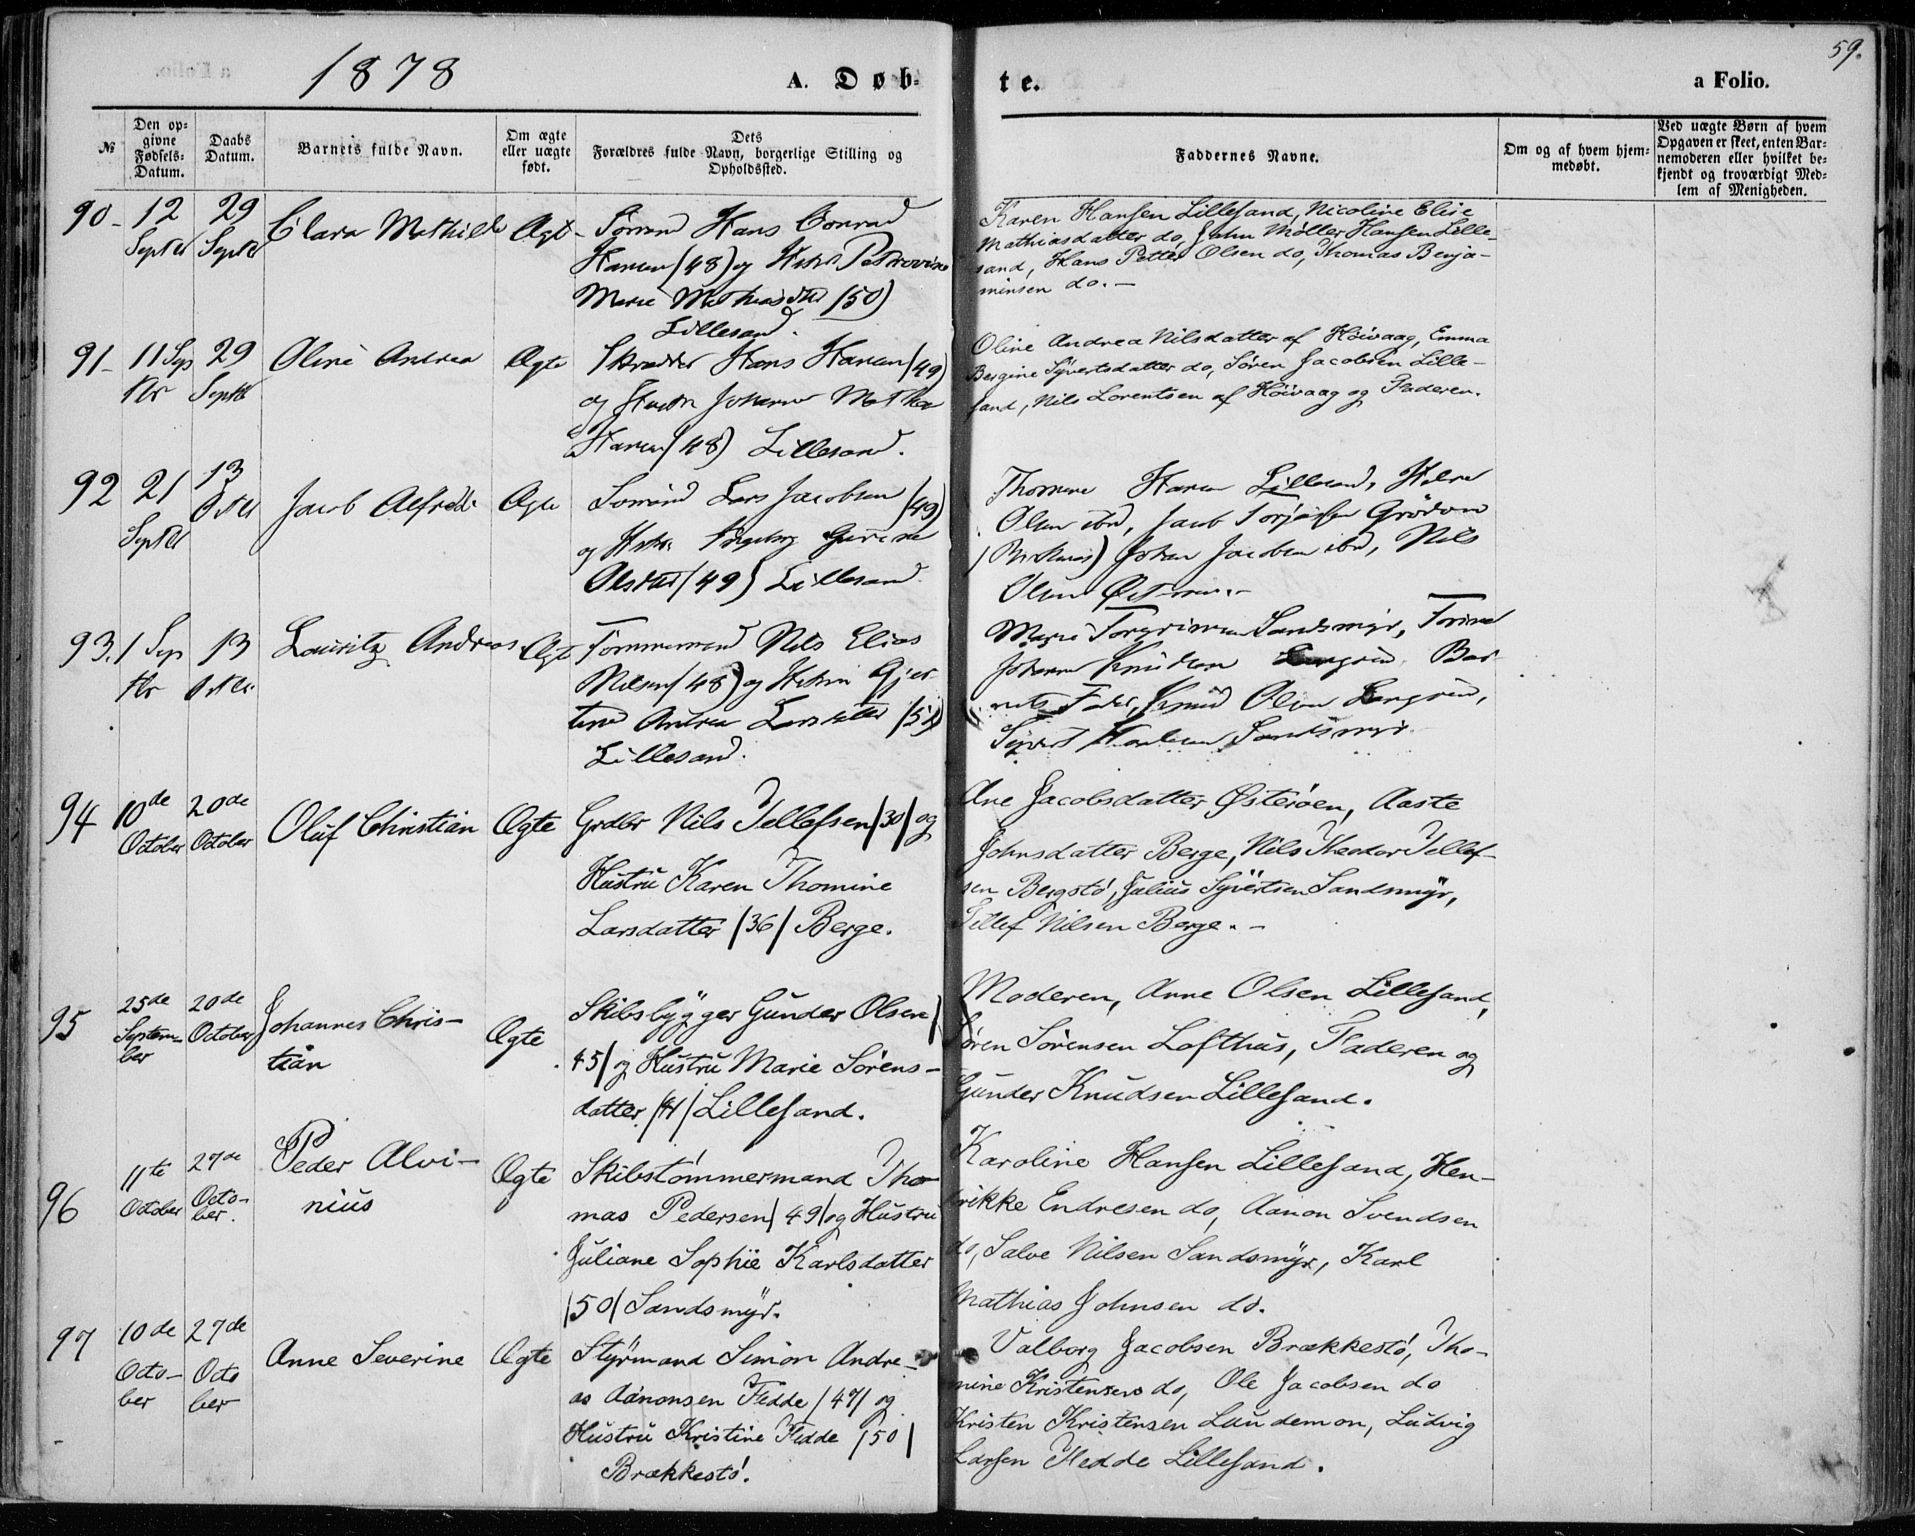 59.
1878
A. Døb-
te.
a Folio.
№
Den op-
givne
Fødsels-
Datum.
Daabs
Datum.
Barnets fulde Navn.
Om ægte
eller uægte
født.
Dets
Forældres fulde Navn, borgerlige Stilling og
Opholdssted.
Faddernes Navne.
Om og af hvem hjem-
medøbt.
Ved uægte Børn af hvem
Opgaven er skeet, enten Bar-
nemoderen eller hvilket be-
kjendt og troværdigt Med-
lem af Menigheden.
90-
12
Septbr
29
Septbr
Clara Mathilde
Ægte
Hans Conrad
Hansen (48) og
Marie (50)
Lillesand.
Karen Hansen Lillesand, Nicoline Elise
Mathiasdatter do, John Møller Hansen Lille-
sand, Hans Petter Olsen do, Thomas Benja-
minsen do.-
91-
11 Sep
tbr
29
Septbr
Oline Andrea
Ægte
Skrædder Hans Hansen (49)
og Johanne
Hansen (48) Lillesand.
Oline Andrea Nilsdatter af Höivaag, Emma
Bergine Syvertsdatter do, Søren Jacobsen Lille-
sand, Nils Lorentsen af Höivaag og Faderen.
92
21
Septbr
13
Octbr
Jacob Alfred
Ægte
Lars Jacobsen (49)
og Ingeborg
(49) Lillesand
Lillesand,
Olsen ibd, Jacob
Johan Jacobsen ibd, Nils
Olsen
93.
1 Sep
tbr
13
Octbr
Lauritz Andreas
Ægte
Tømmermand Nils Elias
Nilsen (48) og
Andrea Larsdatter
Lillesand.
Marie Sandsmyr,
Johanne Knudsen Bar-
nets Fader, Knud Olsen
Sandsmyr
94
10de
October
20de
October
Oluf Christian
Ægte
Grdbr Nils Tellefsen /30/ og
Hustru Karen Thomine
Larsdatter /36/ Berge.
Ane Jacobsdatter Østerøen, Aaste
Johnsdatter Berge, Nils Theodor Tellef-
sen Bergstø, Julius Syvertsen Sandsmyr,
Tellef Nilsen Berge.-
95
25de
Septem-
ber
20de
October
Johannes Chris-
tian
Ægte
Skibsbygger Gunder Olsen /
45/ og Hustru Marie Sørens-
datter /41/ Lillesand.
Moderen, Anne Olsen Lillesand,
Søren Sørensen Lofthus, Faderen og
Gunder Knudsen Lillesand.
96
11te
October
27de
Octo-
ber.
Peder Alvi-
nius
Ægte
Skibstømmermand Tho-
mas Pedersen /49/ og Hustru
Juliane Sophie Karlsdatter
/50/ Sandsmyr.
Karoline Hansen Lillesand, Hen-
rikke Endresen do, Aanon Svendsen
do, Salve Nilsen Sandsmyr, Karl
Mathias Johnsen do.
97
10de
Octo-
ber
27de
Octo
ber
Anne Severine
Ægte
Styrmand Simon Andre-
as Aanonsen Fedde /47/ og
Hustru Kristine Fedde /50/
Brækkestø.
Valborg Jacobsen Brækkestø, Tho-
mine Kristensen do, Ole Jacobsen do
Kristen Kristensen Laudemon, Ludvig
Larsen Fedde Lillesand.